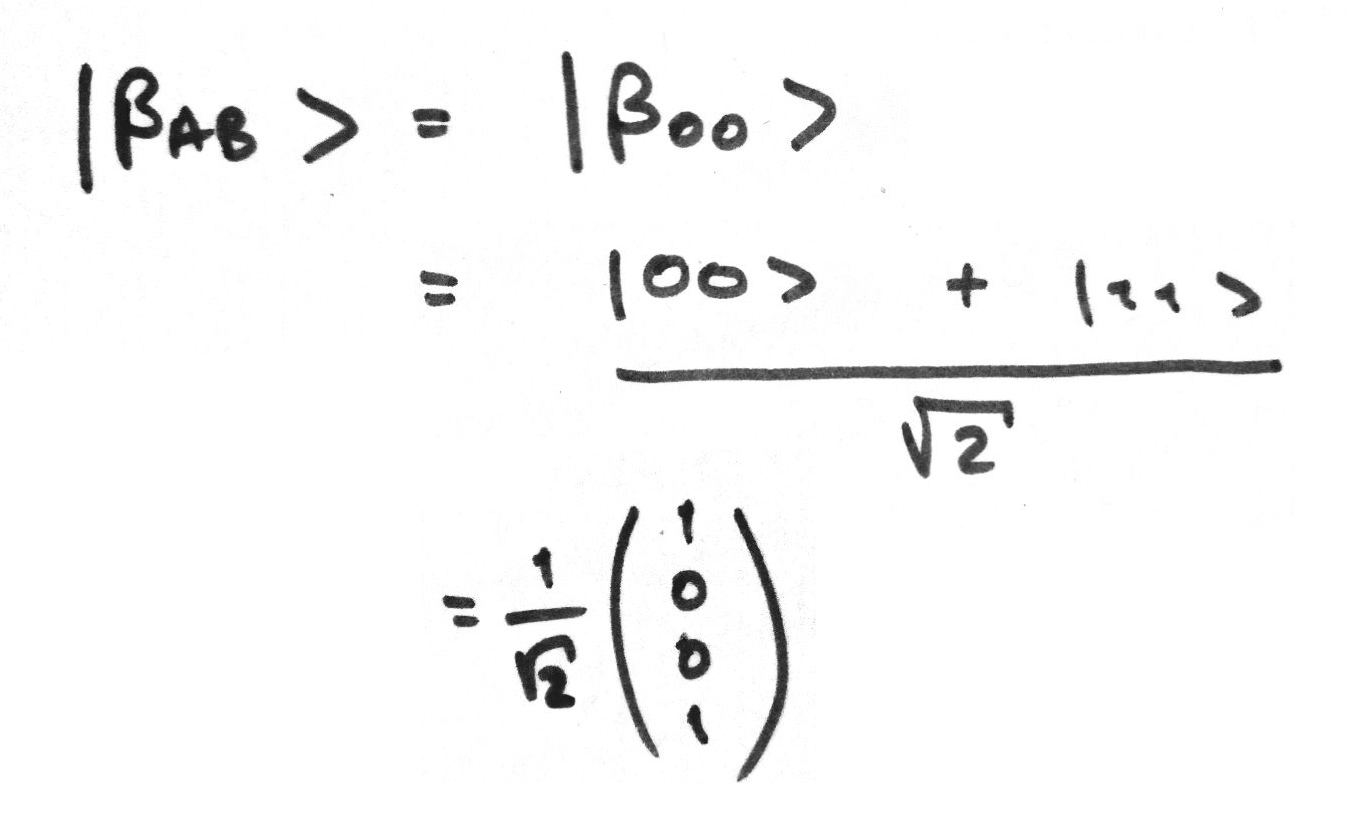 |β_AB> = |β_00>
= (|00> + |11>)/√2
= 1/√2 (1 0 0 1)